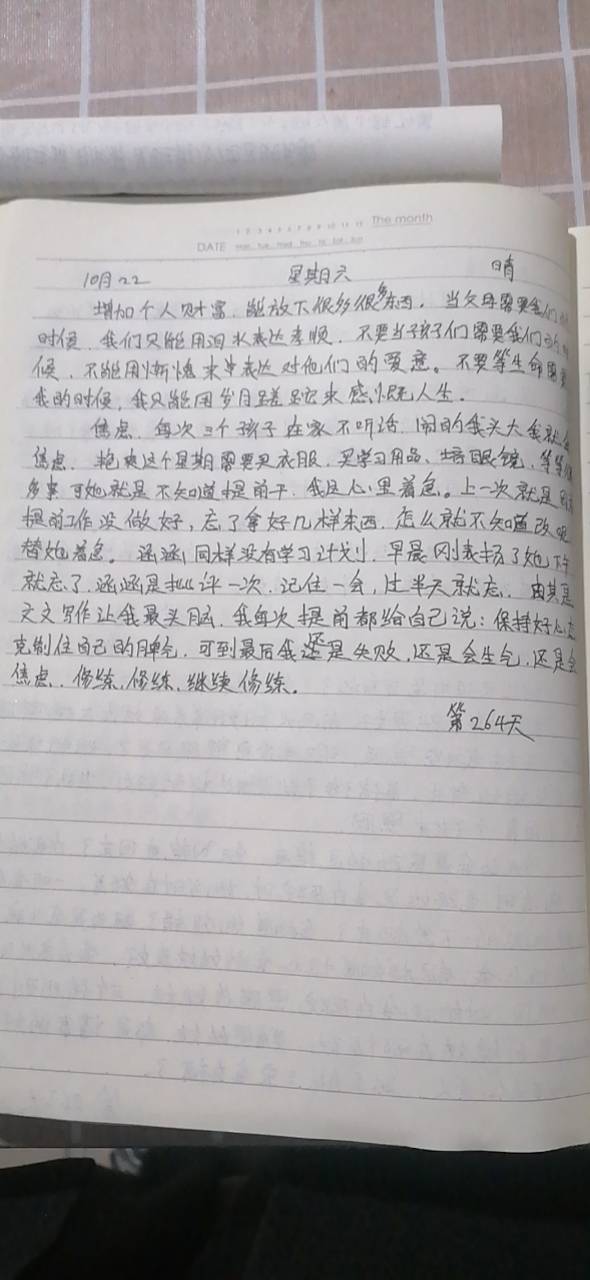 The month
DATE
10月22 星期六 晴
增加个人财富,能放下很多很多东西。当父母需要我们的
时候,我们只能用泪水表达孝顺,不要当孩子们需要我们的时
候,不能用惭愧来表达对他们的爱意。不要等生命需要
我的时候,我只能用岁月蹉跎来感慨人生。
焦虑,每次三个孩子在家不听话,闹的我头大我就会
焦虑,这个星期需要买衣服、买学习用品、培眼镜,等等很
多事可她就是不知道提前干,我是心里着急。上一次就是
提前工作没做好,忘了拿好几样东西,怎么就不知道改呢
替她着急。涵涵同样没有学习计划,早晨刚表扬了她下午
就忘了,涵涵是批评一次,记住一会,过半天就忘。由其是
文写作让我最头脑,我每次提前都给自己说:保持好心态
克制住自己的脾气,可到最后我还是失败,还是会生气,还是会
焦虑,修练,修练,继续修练。
第264天